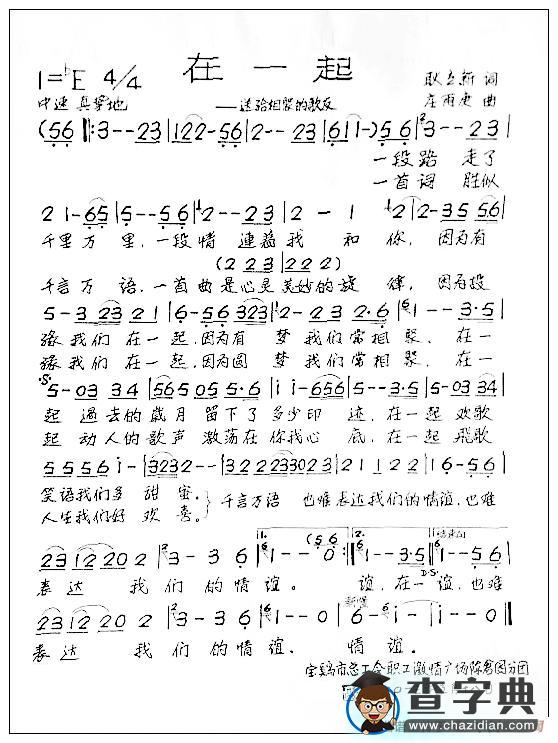 在一起
1=♭E 4/4
中速 真挚地
——送给相聚的歌友
词
曲
(56 ‖: 3--23 | 122-56 | 2--23 | 611-) 56 | 3--23 |
一段路 走了
一首词 胜似
21-65 | 5--56 | 2--23 | 2-1 | 2 | 2-35 56 |
千里万里，一段情 连着我 和 你，因为有
(223 | 222)
千言万语，一首曲是心灵美妙的旋 律，因为投
5-33 23 21 | 6-56 323 | 2-23 2·6 | 1--3·5 |
缘我们在一起，因为有 梦我们常相聚，在一
缘我们在一起，因为圆 梦我们常相聚，在一
D.S.
5-03 34 | 565 05 05 5·6 | i i-656 | 5--35 | 5-03 34 |
起 过去的岁月 留下了多少印 迹，在一起 欢歌
起 动人的歌声 激荡在你我心 底，在一起 飞歌
55 56 i- | 3232-- | 3222302321 | 21 2-- | 16-56 |
笑语我们多 甜蜜。
人生我们好 欢喜。
千言万语 也难表达我们的情谊，也难
1.
2.
结束句
(56
23 12 20 2 | 3-36 | 1--0 :‖ 1--3·5 | 1--56 |
表达 我们的情谊。 谊，在一 谊，也难
D.S.
23 12 20 2 | 3-36 | 1--0 | 6-6 | i-i- | i--0 ‖
表达 我们的情谊。 情谊。
宝鸡市总工会职工激情广场陈仓园分团
查字典
www.chazidian.com